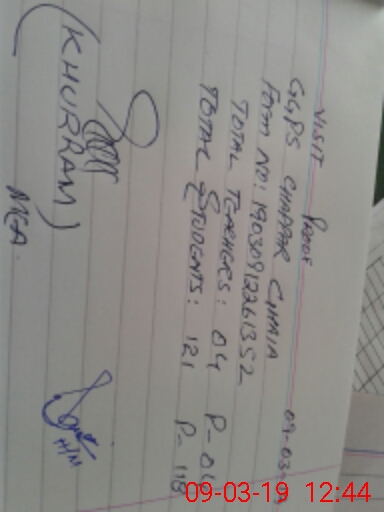 VISIT PROOF
GGPS CHAPAR GHAIA 09-03-19
Form NO: 19030912261352
TOTAL TEACHERS: 04 P-04
TOTAL STUDENTS: 121 P-118
(KHURRAM)
MEA.
H/M
09-03-19 12:44